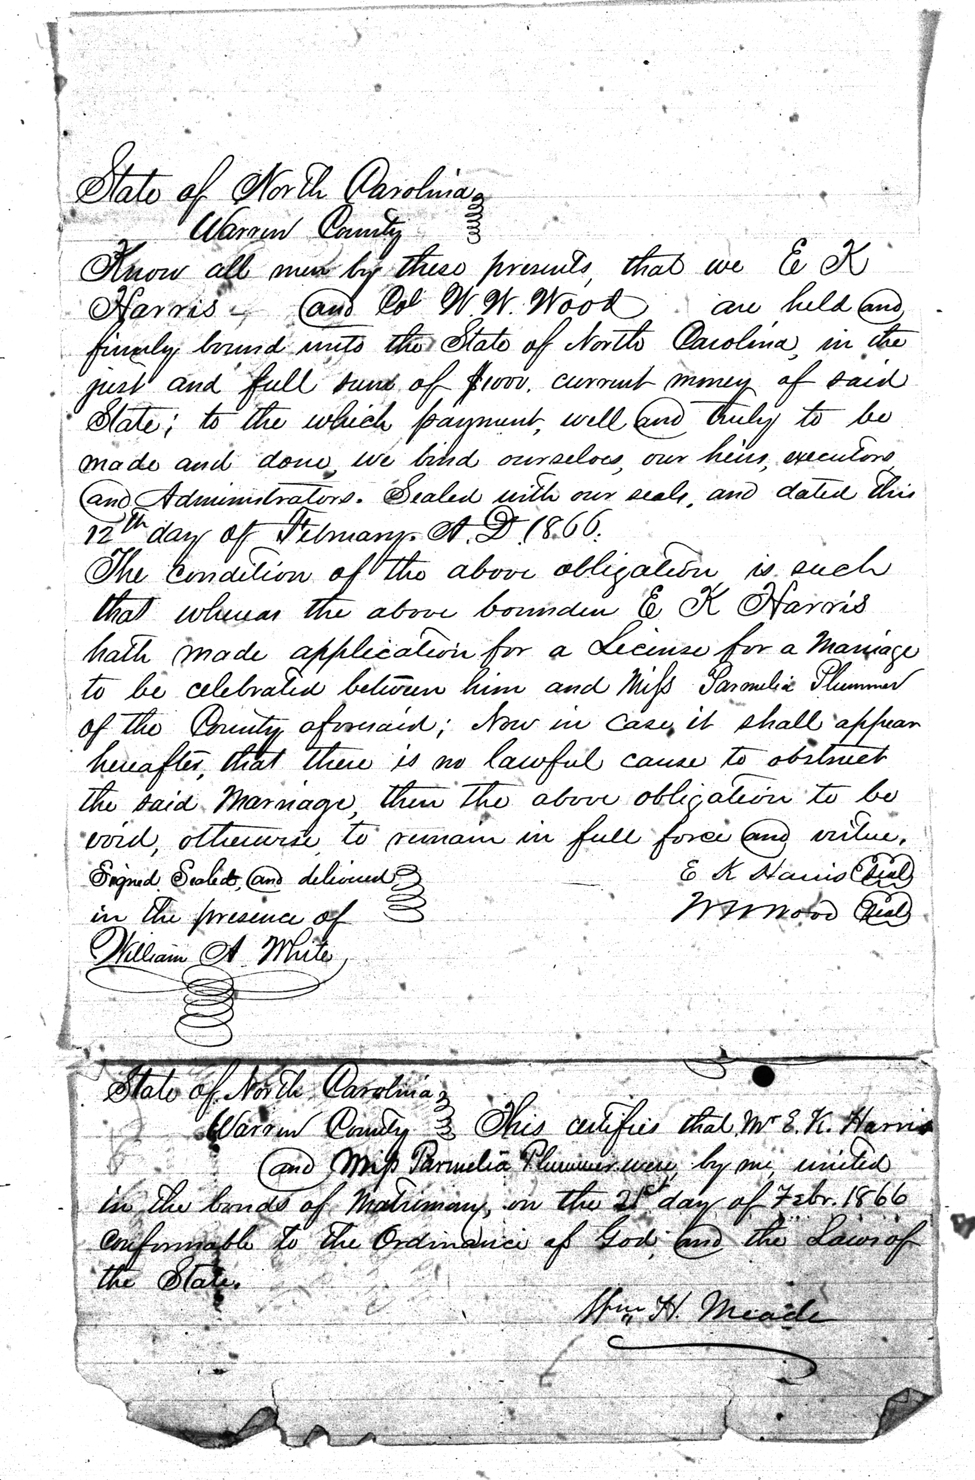 State of North Carolina
Warren County
Know all men by these presents, that we E K
Harris and Col W. W. Wood are held and
firmly bound unto the State of North Carolina, in the
just and full sum of $1000. current money of said
State; to the which payment, well and truly to be
made and done, we bind ourselves, our heirs, executors
and Administrators. Sealed with our seals, and dated this
12th day of February A. D. 1866.
The condition of the above obligation is such
that whereas the above bounden E K Harris
hath made application for a License for a Marriage
to be celebrated between him and Miss Parmelia Plummer
of the County aforesaid; Now in case it shall appear
hereafter, that there is no lawful cause to obstruct
the said Marriage, then the above obligation to be
void, otherwise to remain in full force and virtue.
Signed, Sealed, and delivered E K Harris Seal
in the presence of W W Wood Seal
William A White
State of North Carolina
Warren County This certifies that Mr E. K. Harris
and Miss Parmelia Plummer were, by me, united
in the bonds of Matrimony, on the 21st day of Febr. 1866
conformable to the Ordinance of God, and the Laws of
the State.
Wm H. Meade